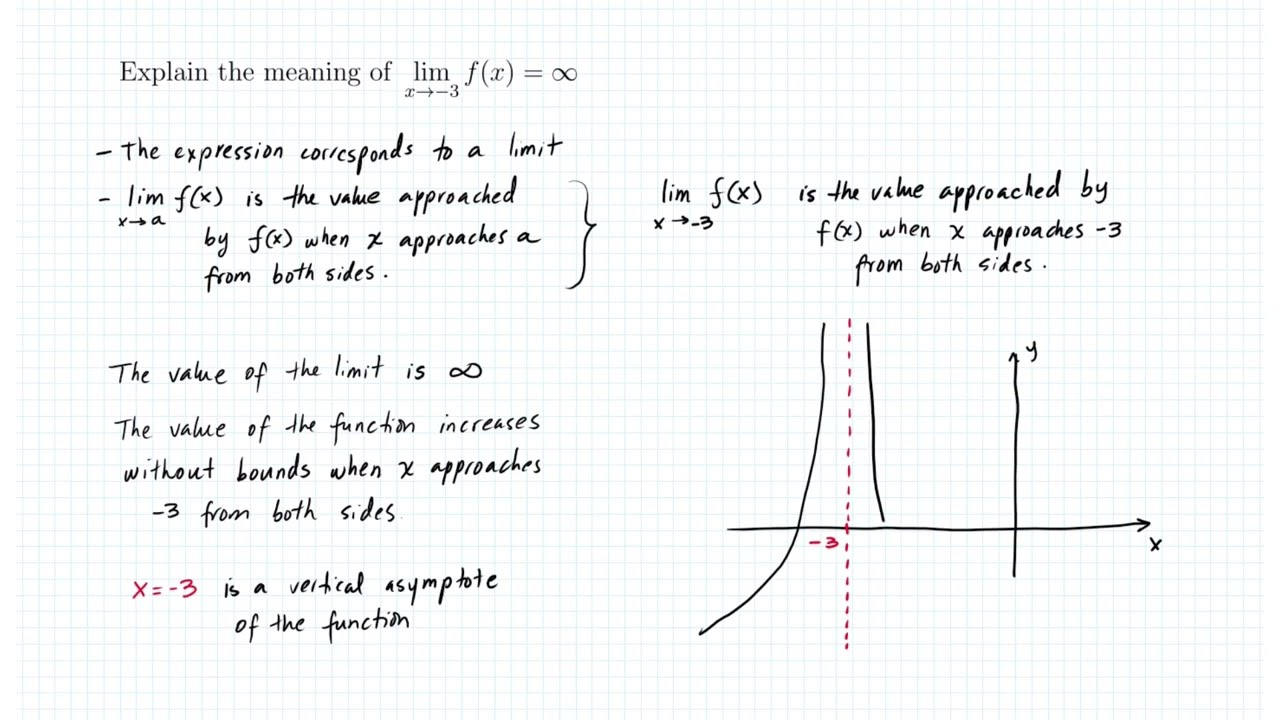 Explain the meaning of lim f(x) = ∞
x→−3
- The expression corresponds to a limit
- lim f(x) is the value approached
x→a
by f(x) when x approaches a
from both sides.
lim f(x) is the value approached by
x→-3
f(x) when x approaches -3
from both sides.
The value of the limit is ∞
The value of the function increases
without bounds when x approaches
-3 from both sides.
x=-3 is a vertical asymptote
of the function
y
-3
x